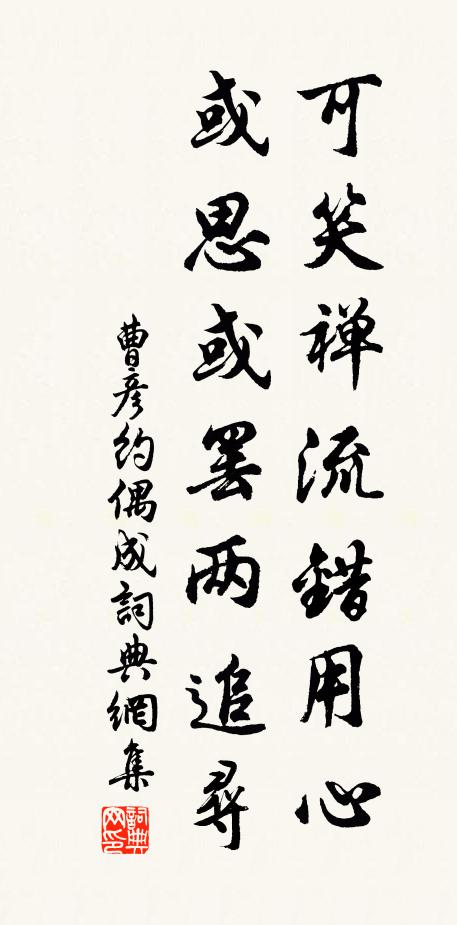 可笑禅流錯用心
或思或罢两追尋
曹彦约偶成詞典網集
詞典网印